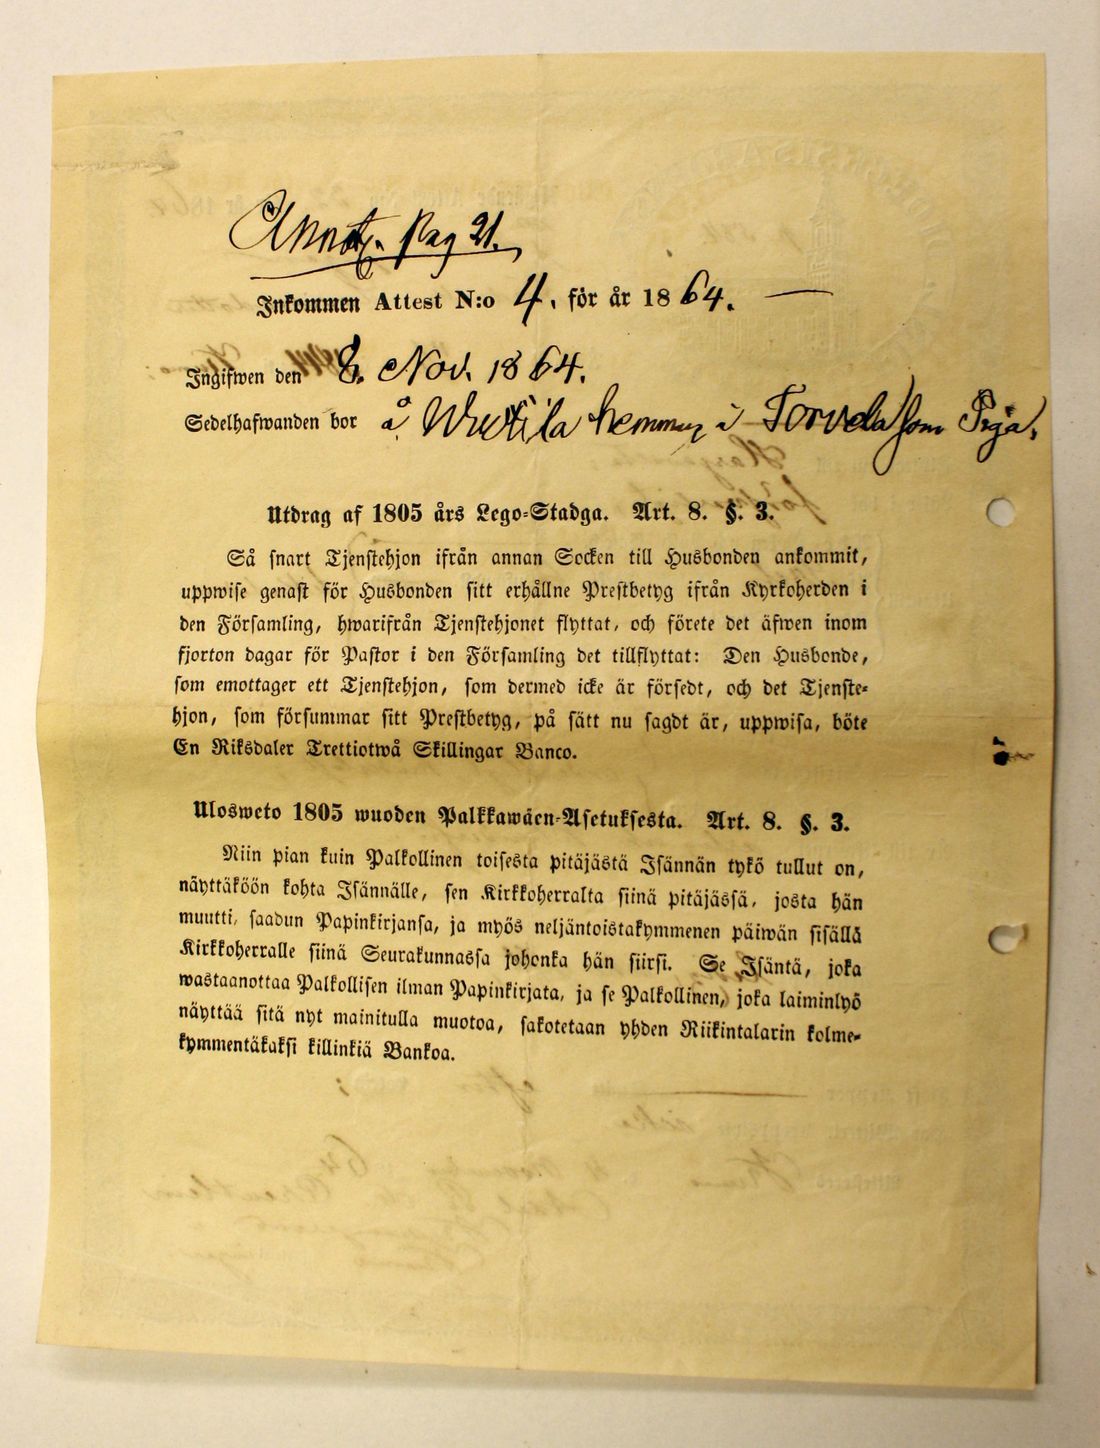 Annot. Pag 21.
Inkommen Attest N:o 4. för år 1864.
Ingifwen den 8. Nov. 1864.
Sedelhafwanden bor å hemman i Torvela som Piga.
Utdrag af 1805 års Lego-Stadga. Art. 8. §. 3.
Så snart Tjenstehjon ifrån annan Socken till Husbonden ankommit,
uppwise genast för Husbonden sitt erhållne Prestbetyg ifrån Kyrkoherden i
den Församling, hwarifrån Tjenstehjonet flyttat, och förete det äfwen inom
fjorton dagar för Pastor i den Församling det tillflyttat: Den Husbonde,
som emottager ett Tjenstehjon, som dermed icke är försedt, och det Tjenste-
hjon, som försummar sitt Prestbetyg, på sätt nu sagdt är, uppwisa, böte
En Riksdaler Trettiotwå Skillingar Banco.
Ulosweto 1805 wuoden Palkkawäen-Asetuksesta. Art. 8. §. 3.
Niin pian kuin Palkollinen toisesta pitäjästä Isännän tykö tullut on,
näyttäköön kohta Isännälle, sen Kirkkoherralta siinä pitäjässä, josta hän
muutti, saadun Papinkirjansa, ja myös neljäntoistakymmenen päiwän sisällä
Kirkkoherralle siinä Seurakunnassa johonka hän siirsi. Se Isäntä, joka
wastaanottaa Palkollisen ilman Papinkirjata, ja se Palkollinen, joka laiminlyö
näyttää sitä nyt mainitulla muotoa, sakotetaan yhden Riikintalarin kolme-
kymmentäkaksi killinkiä Bankoa.